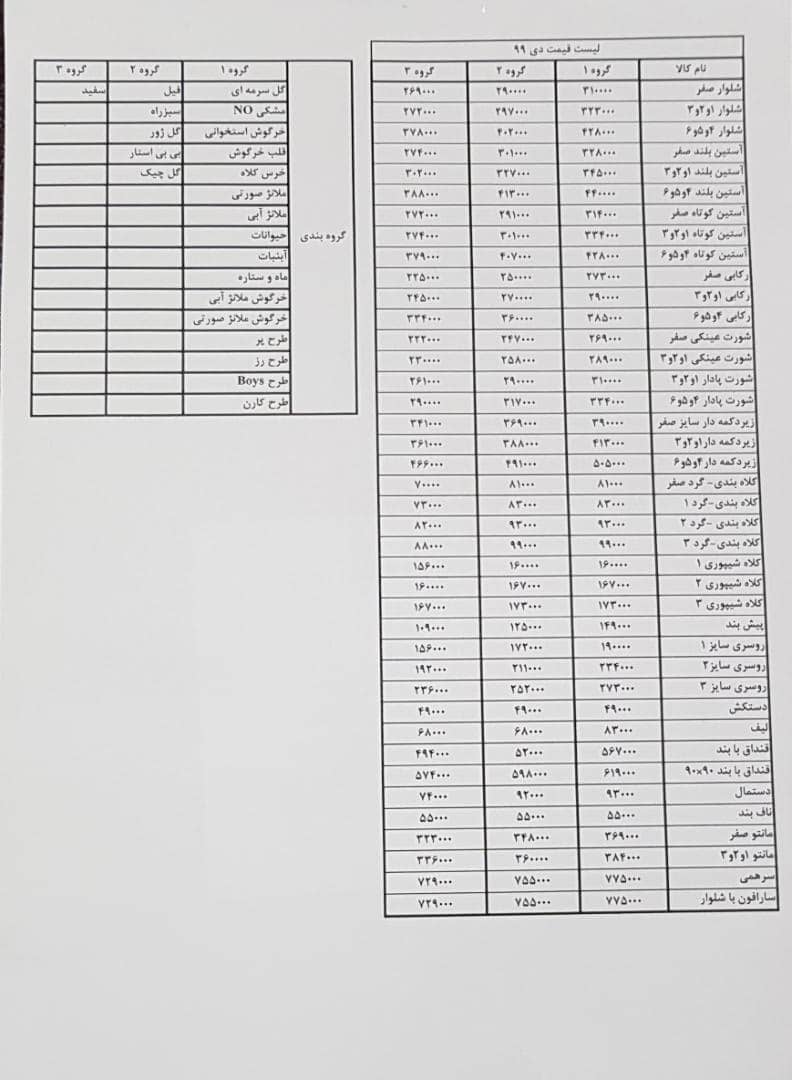 لیست قیمت دی ۹۹
نام کالا گروه ۱ گروه ۲ گروه ۳
شلوار صفر ۳۱۰۰۰۰ ۲۹۰۰۰۰ ۲۶۹۰۰۰
شلوار ۱و۲و۳ ۳۲۳۰۰۰ ۲۹۷۰۰۰ ۲۷۲۰۰۰
شلوار ۴و۵و۶ ۴۲۸۰۰۰ ۴۰۲۰۰۰ ۳۷۸۰۰۰
آستین بلند صفر ۳۲۸۰۰۰ ۳۰۱۰۰۰ ۲۷۴۰۰۰
آستین بلند ۱و۲و۳ ۳۴۵۰۰۰ ۳۲۷۰۰۰ ۳۰۲۰۰۰
آستین بلند ۴و۵و۶ ۴۴۰۰۰۰ ۴۱۳۰۰۰ ۳۸۸۰۰۰
آستین کوتاه صفر ۳۱۴۰۰۰ ۲۹۱۰۰۰ ۲۷۲۰۰۰
آستین کوتاه ۱و۲و۳ ۳۳۴۰۰۰ ۳۰۱۰۰۰ ۲۷۴۰۰۰
آستین کوتاه ۴و۵و۶ ۴۲۸۰۰۰ ۴۰۷۰۰۰ ۳۷۹۰۰۰
رکابی صفر ۲۷۳۰۰۰ ۲۵۰۰۰۰ ۲۲۵۰۰۰
رکابی ۱و۲و۳ ۲۹۰۰۰۰ ۲۷۰۰۰۰ ۲۴۵۰۰۰
رکابی ۴و۵و۶ ۳۸۵۰۰۰ ۳۶۰۰۰۰ ۳۳۴۰۰۰
شورت عینکی صفر ۲۶۹۰۰۰ ۲۴۷۰۰۰ ۲۲۲۰۰۰
شورت عینکی ۱و۲و۳ ۲۸۹۰۰۰ ۲۵۸۰۰۰ ۲۳۰۰۰۰
شورت پادار ۱و۲و۳ ۳۱۰۰۰۰ ۲۹۰۰۰۰ ۲۶۱۰۰۰
شورت پادار ۴و۵و۶ ۳۳۴۰۰۰ ۳۱۷۰۰۰ ۲۹۰۰۰۰
زیردکمه دار سایز صفر ۳۹۰۰۰۰ ۳۶۹۰۰۰ ۳۴۱۰۰۰
زیردکمه دار۱و۲و۳ ۴۱۳۰۰۰ ۳۸۸۰۰۰ ۳۶۱۰۰۰
زیردکمه دار ۴و۵و۶ ۵۰۵۰۰۰ ۴۹۱۰۰۰ ۴۶۶۰۰۰
کلاه بندی- گرد صفر ۸۱۰۰۰ ۸۱۰۰۰ ۷۰۰۰۰
کلاه بندی-گرد ۱ ۸۳۰۰۰ ۸۳۰۰۰ ۷۳۰۰۰
کلاه بندی -گرد ۲ ۹۳۰۰۰ ۹۳۰۰۰ ۸۲۰۰۰
کلاه بندی-گرد ۳ ۹۹۰۰۰ ۹۹۰۰۰ ۸۸۰۰۰
کلاه شیپوری ۱ ۱۶۰۰۰۰ ۱۶۰۰۰۰ ۱۵۶۰۰۰
کلاه شیپوری ۲ ۱۶۷۰۰۰ ۱۶۷۰۰۰ ۱۶۰۰۰۰
کلاه شیپوری ۳ ۱۷۳۰۰۰ ۱۷۳۰۰۰ ۱۶۷۰۰۰
پیش بند ۱۴۹۰۰۰ ۱۲۵۰۰۰ ۱۰۹۰۰۰
روسری سایز ۱ ۱۹۰۰۰۰ ۱۷۲۰۰۰ ۱۵۶۰۰۰
روسری سایز۲ ۲۳۴۰۰۰ ۲۱۱۰۰۰ ۱۹۲۰۰۰
روسری سایز ۳ ۲۷۳۰۰۰ ۲۵۲۰۰۰ ۲۳۶۰۰۰
دستکش ۴۹۰۰۰ ۴۹۰۰۰ ۴۹۰۰۰
لیف ۸۳۰۰۰ ۶۸۰۰۰ ۶۸۰۰۰
قنداق با بند ۵۶۷۰۰۰ ۵۲۰۰۰ ۴۹۴۰۰۰
قنداق با بند ۹۰×۹۰ ۶۱۹۰۰۰ ۵۹۸۰۰۰ ۵۷۴۰۰۰
دستمال ۹۳۰۰۰ ۹۲۰۰۰ ۷۴۰۰۰
ناف بند ۵۵۰۰۰ ۵۵۰۰۰ ۵۵۰۰۰
مانتو صفر ۳۶۹۰۰۰ ۳۴۸۰۰۰ ۳۲۳۰۰۰
مانتو ۱و۲و۳ ۳۸۴۰۰۰ ۳۶۰۰۰۰ ۳۳۶۰۰۰
سرهمی ۷۷۵۰۰۰ ۷۵۵۰۰۰ ۷۲۹۰۰۰
سارافون با شلوار ۷۷۵۰۰۰ ۷۵۵۰۰۰ ۷۲۹۰۰۰
گروه بندی
گروه ۱ گروه ۲ گروه ۳
گل سرمه ای فیل سفید
مشکی NO سبزراه
خرگوش استخوانی گل زور
قلب خرگوش بی بی استار
خرس کلاه گل چیک
ملانژ صورتی
ملانژ آبی
حیوانات
آبنبات
ماه و ستاره
خرگوش ملانژ آبی
خرگوش ملانژ صورتی
طرح پر
طرح رز
طرح Boys
طرح کارن